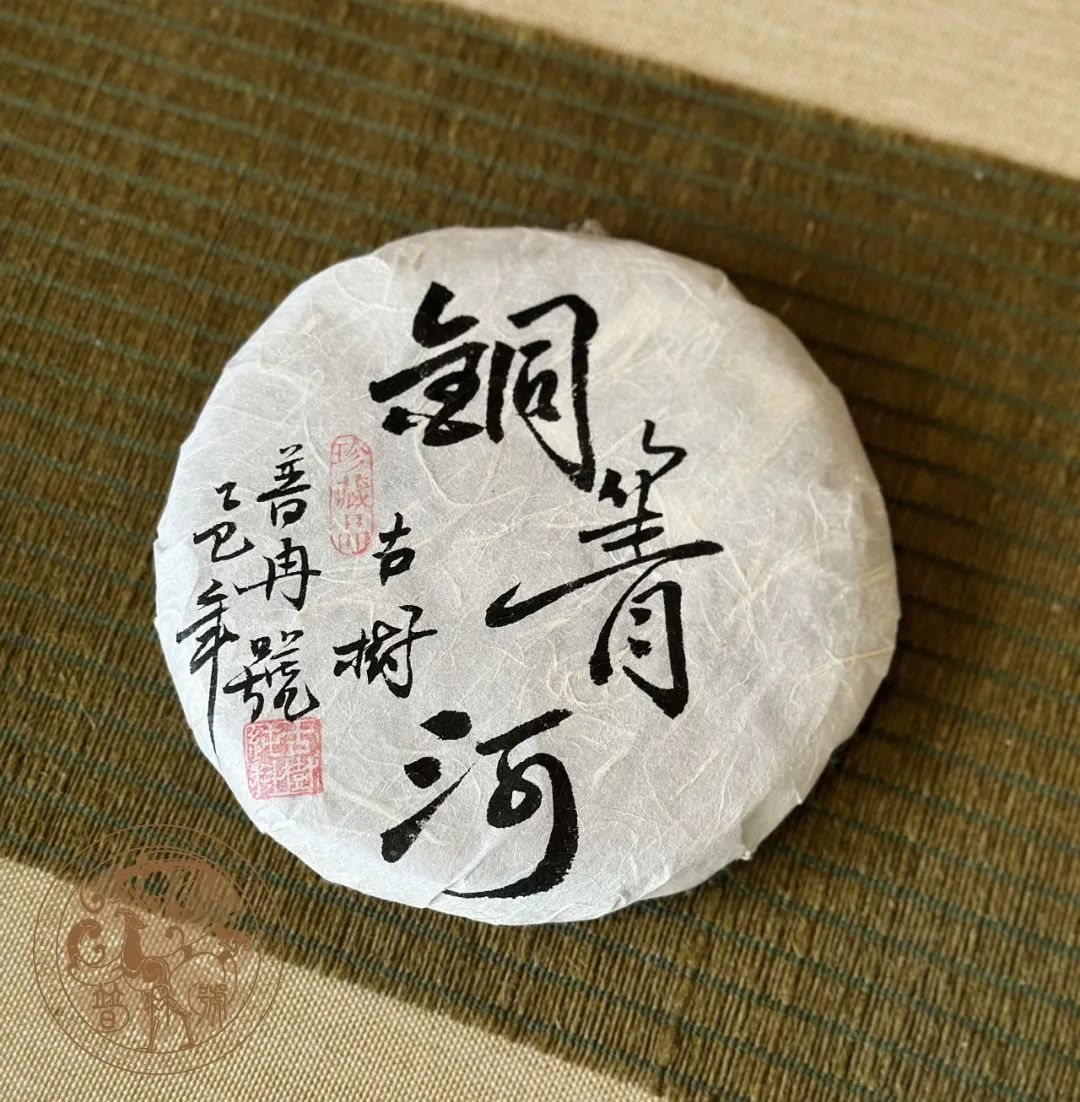 銅箐河
古樹
珍藏品
普冉號
乙巳年
古樹
純料